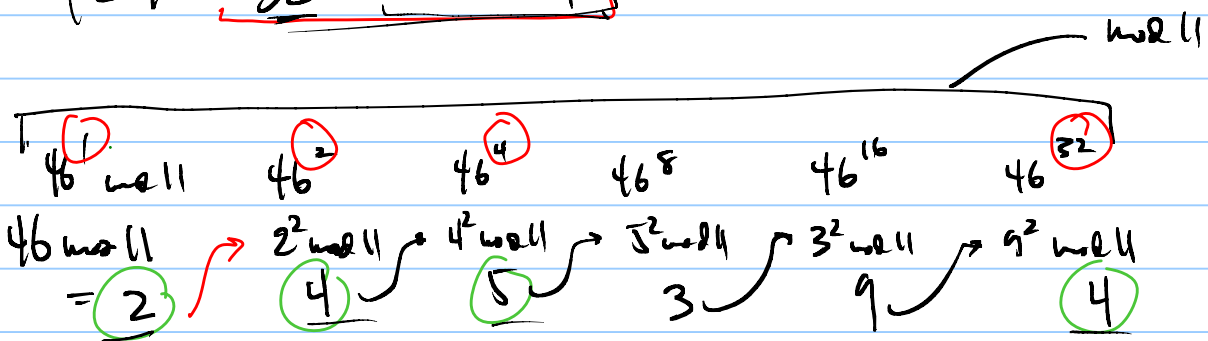 mod 11
46^1 mod 11 46^2 46^4 46^8 46^16 46^32
46 mod 11 2^2 mod 11 4^2 mod 11 5^2 mod 11 3^2 mod 11 9^2 mod 11
= 2 4 5 3 9 4